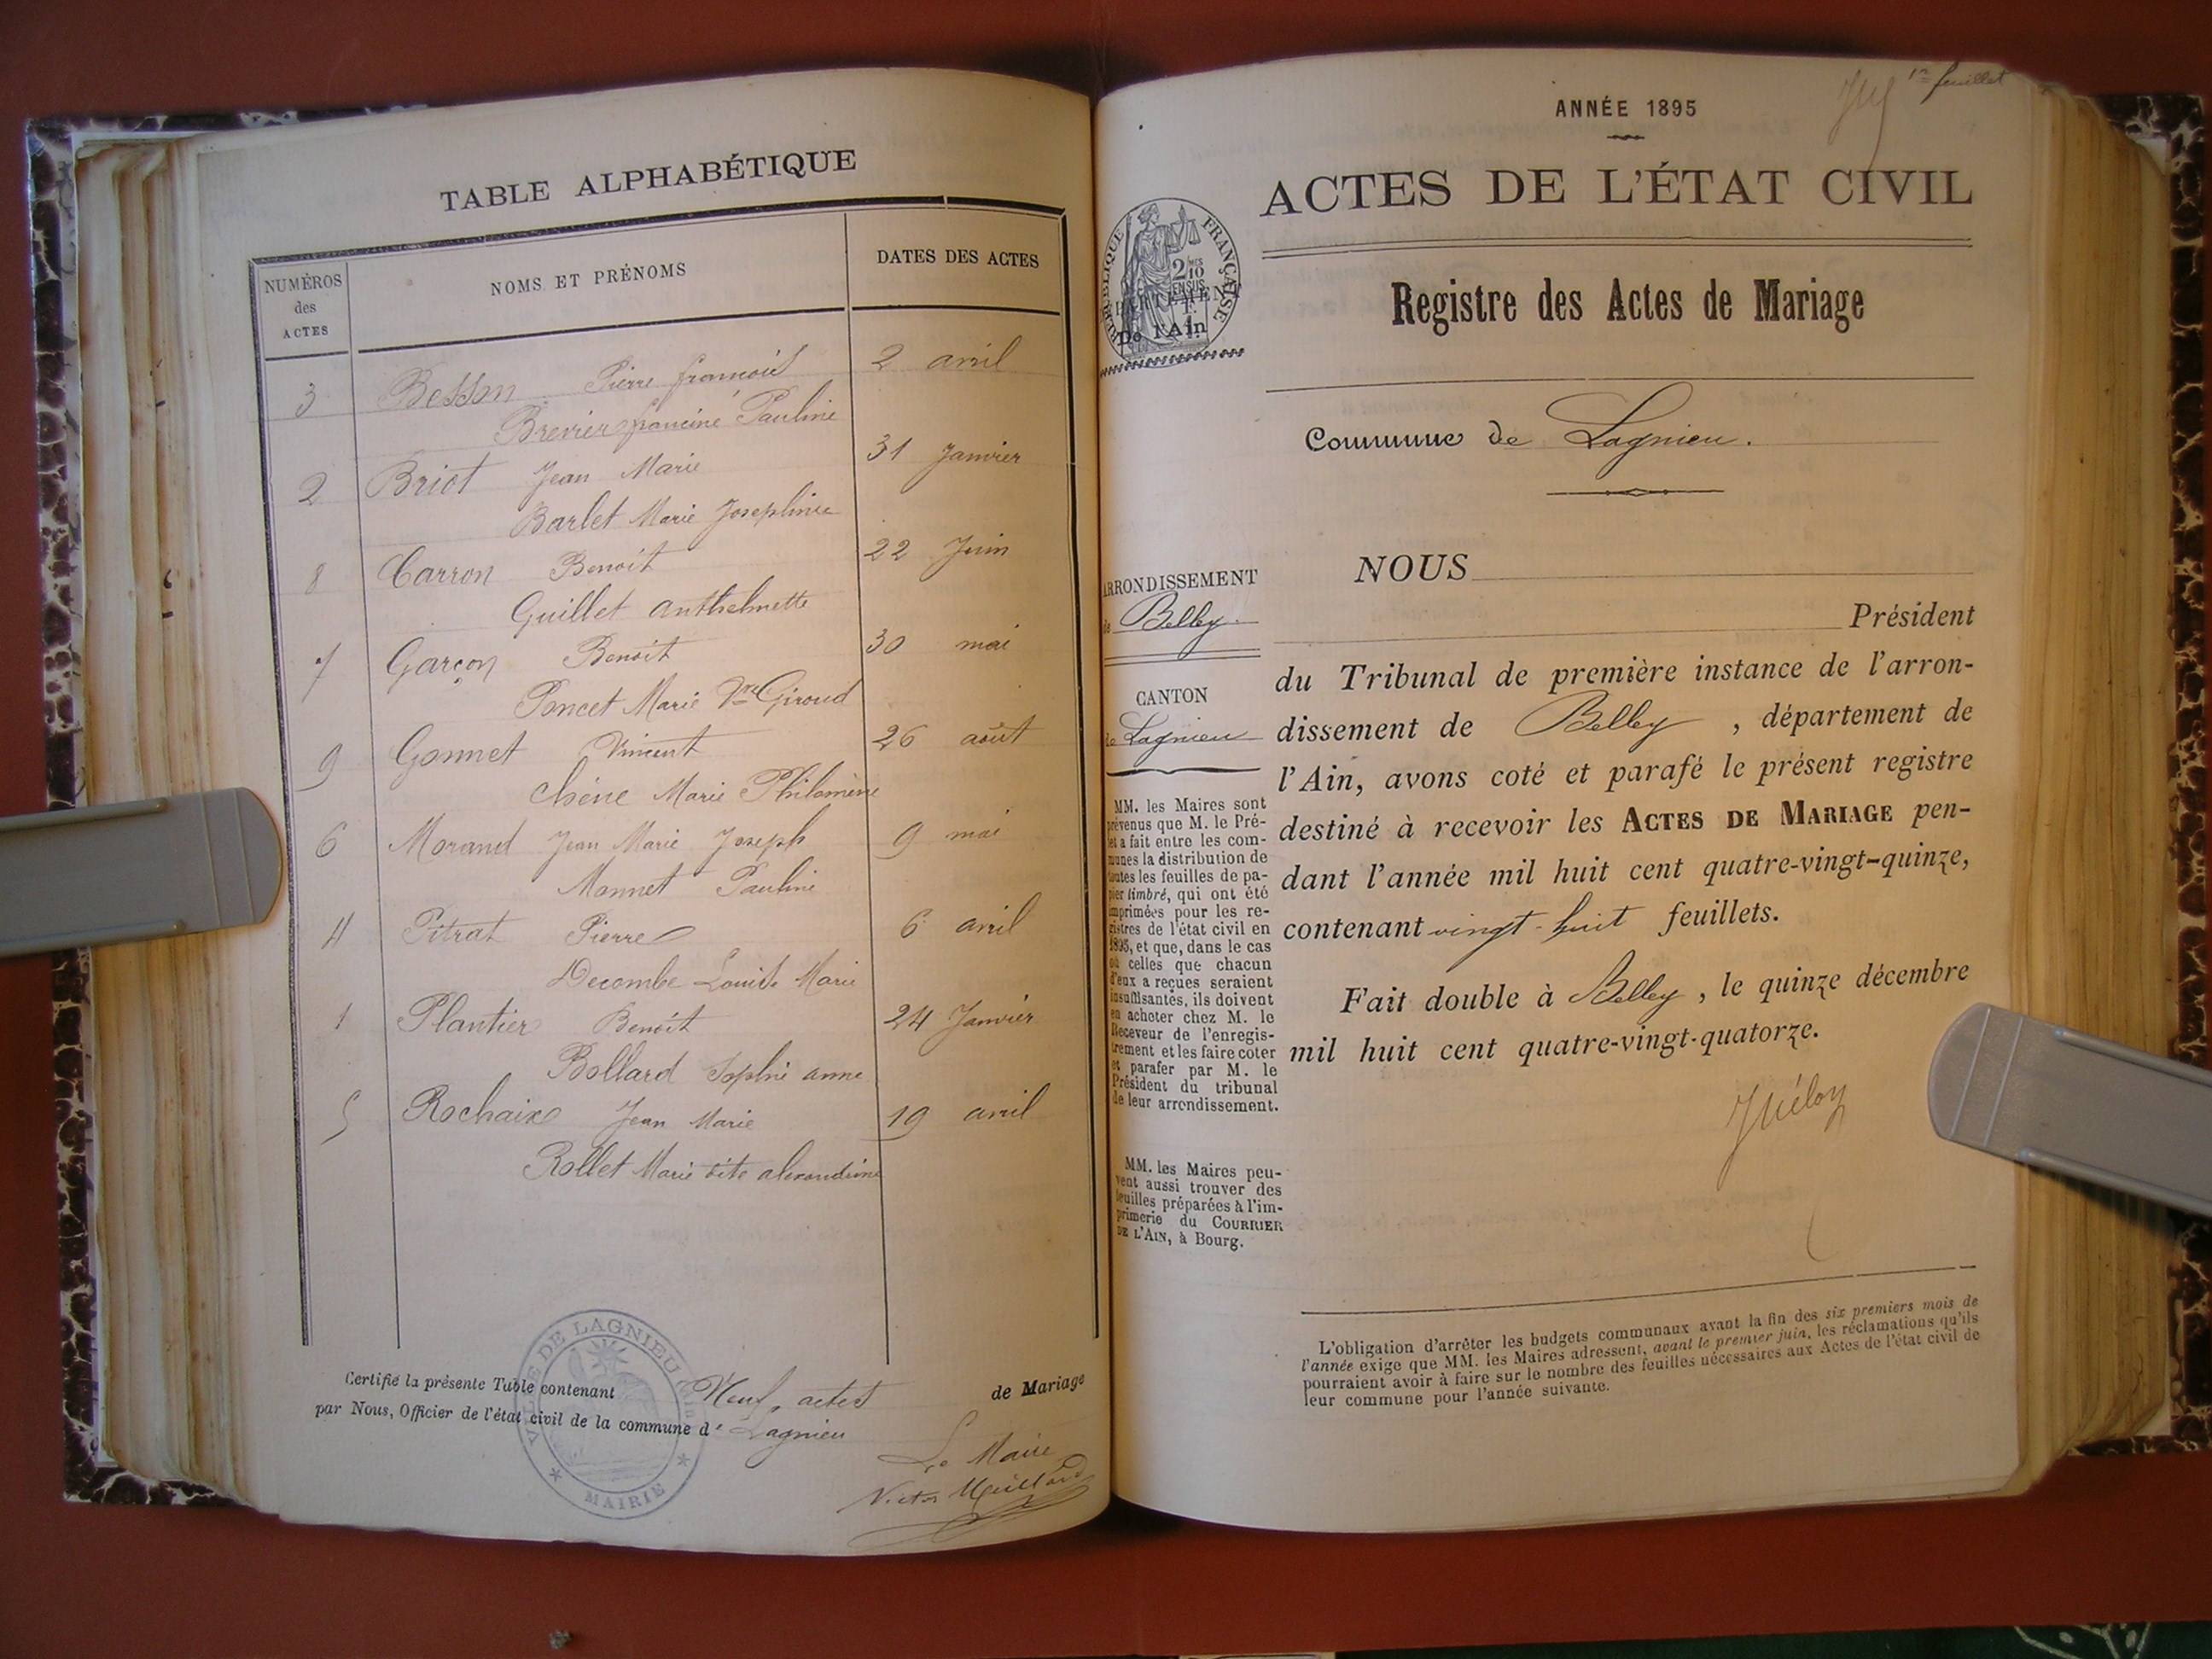 TABLE ALPHABÉTIQUE
NUMÉROS des ACTES
NOMS ET PRÉNOMS
DATES DES ACTES
3 Besson Pierre françois 2 avril
Brevier francine Pauline
2 Briot Jean Marie 31 Janvier
Barlet Marie Josephine
8 Carron Benoit 22 Juin
Guillet Anthelmette
7 Garçon Benoit 30 mai
Poncet Marie Vve Giroud
9 Gonnet Vincent 26 août
Chêne Marie Philomène
6 Morand Jean Marie Joseph 9 mai
Monnet Pauline
4 Pitrat Pierre 6 avril
Decombe Louise Marie
1 Plantier Benoit 24 Janvier
Bollard Sophie anne
5 Rochaix Jean Marie 19 avril
Rollet Marie dite alexandrine
Certifié la présente Table contenant Neuf actes de Mariage
par Nous, Officier de l'état civil de la commune d' Lagnieu
VILLE DE LAGNIEU
MAIRIE
Le Maire
Victor
1er feuillet
ANNÉE 1895
ACTES DE L'ÉTAT CIVIL
RÉPUBLIQUE FRANÇAISE
2/10
EN SUS
DÉPARTEMENT
De l'Ain
Registre des Actes de Mariage
Commune de Lagnieu.
ARRONDISSEMENT
de Belley.
CANTON
de Lagnieu
MM. les Maires sont
prévenus que M. le Pré-
fet a fait entre les com-
munes la distribution de
toutes les feuilles de pa-
pier timbré, qui ont été
imprimées pour les re-
gistres de l'état civil en
1895, et que, dans le cas
où celles que chacun
d'eux a reçues seraient
insuffisantes, ils doivent
en acheter chez M. le
Receveur de l'enregis-
trement et les faire coter
et parafer par M. le
Président du tribunal
de leur arrondissement.
MM. les Maires peu-
vent aussi trouver des
feuilles préparées à l'im-
primerie du COURRIER
DE L'AIN, à Bourg.
NOUS
Président
du Tribunal de première instance de l'arron-
dissement de Belley, département de
l'Ain, avons coté et parafé le présent registre
destiné à recevoir les ACTES DE MARIAGE pen-
dant l'année mil huit cent quatre-vingt-quinze,
contenant vingt-huit feuillets.
Fait double à Belley, le quinze décembre
mil huit cent quatre-vingt-quatorze.
L'obligation d'arrêter les budgets communaux avant la fin des six premiers mois de
l'année exige que MM. les Maires adressent, avant le premier juin, les réclamations qu'ils
pourraient avoir à faire sur le nombre des feuilles nécessaires aux Actes de l'état civil de
leur commune pour l'année suivante.